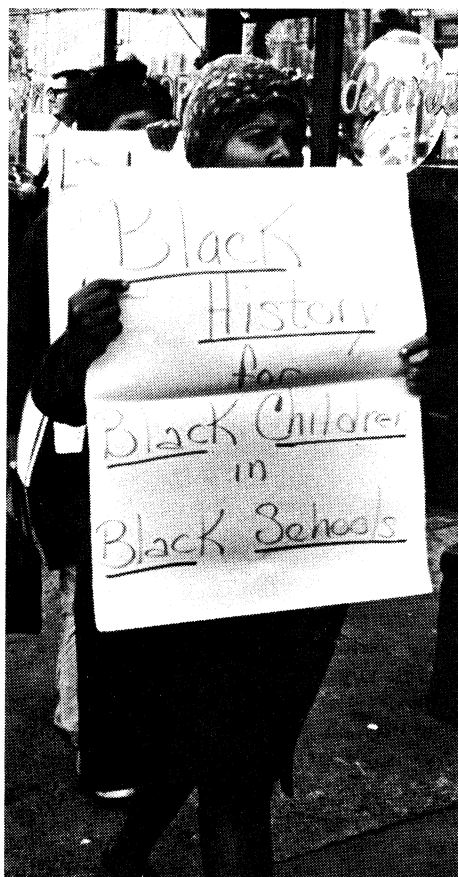 Black
History
for
Black Children
in
Black Schools